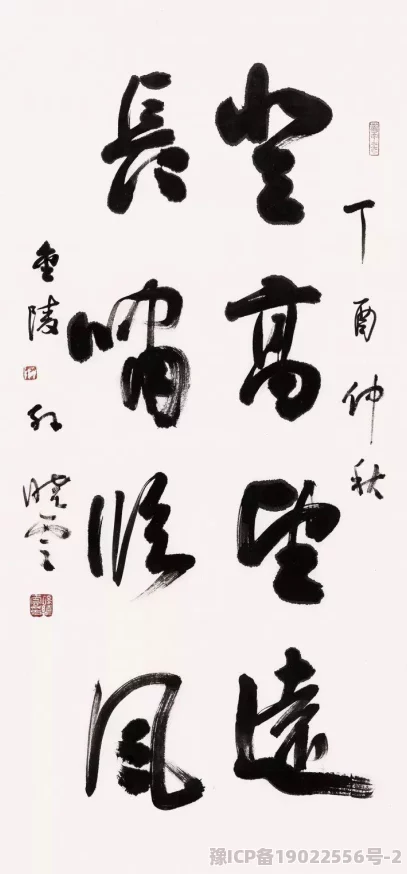 丁酉仲秋
登高望遠
長嘯臨風
金陵
孫曉雲
豫ICP备19022556号-2